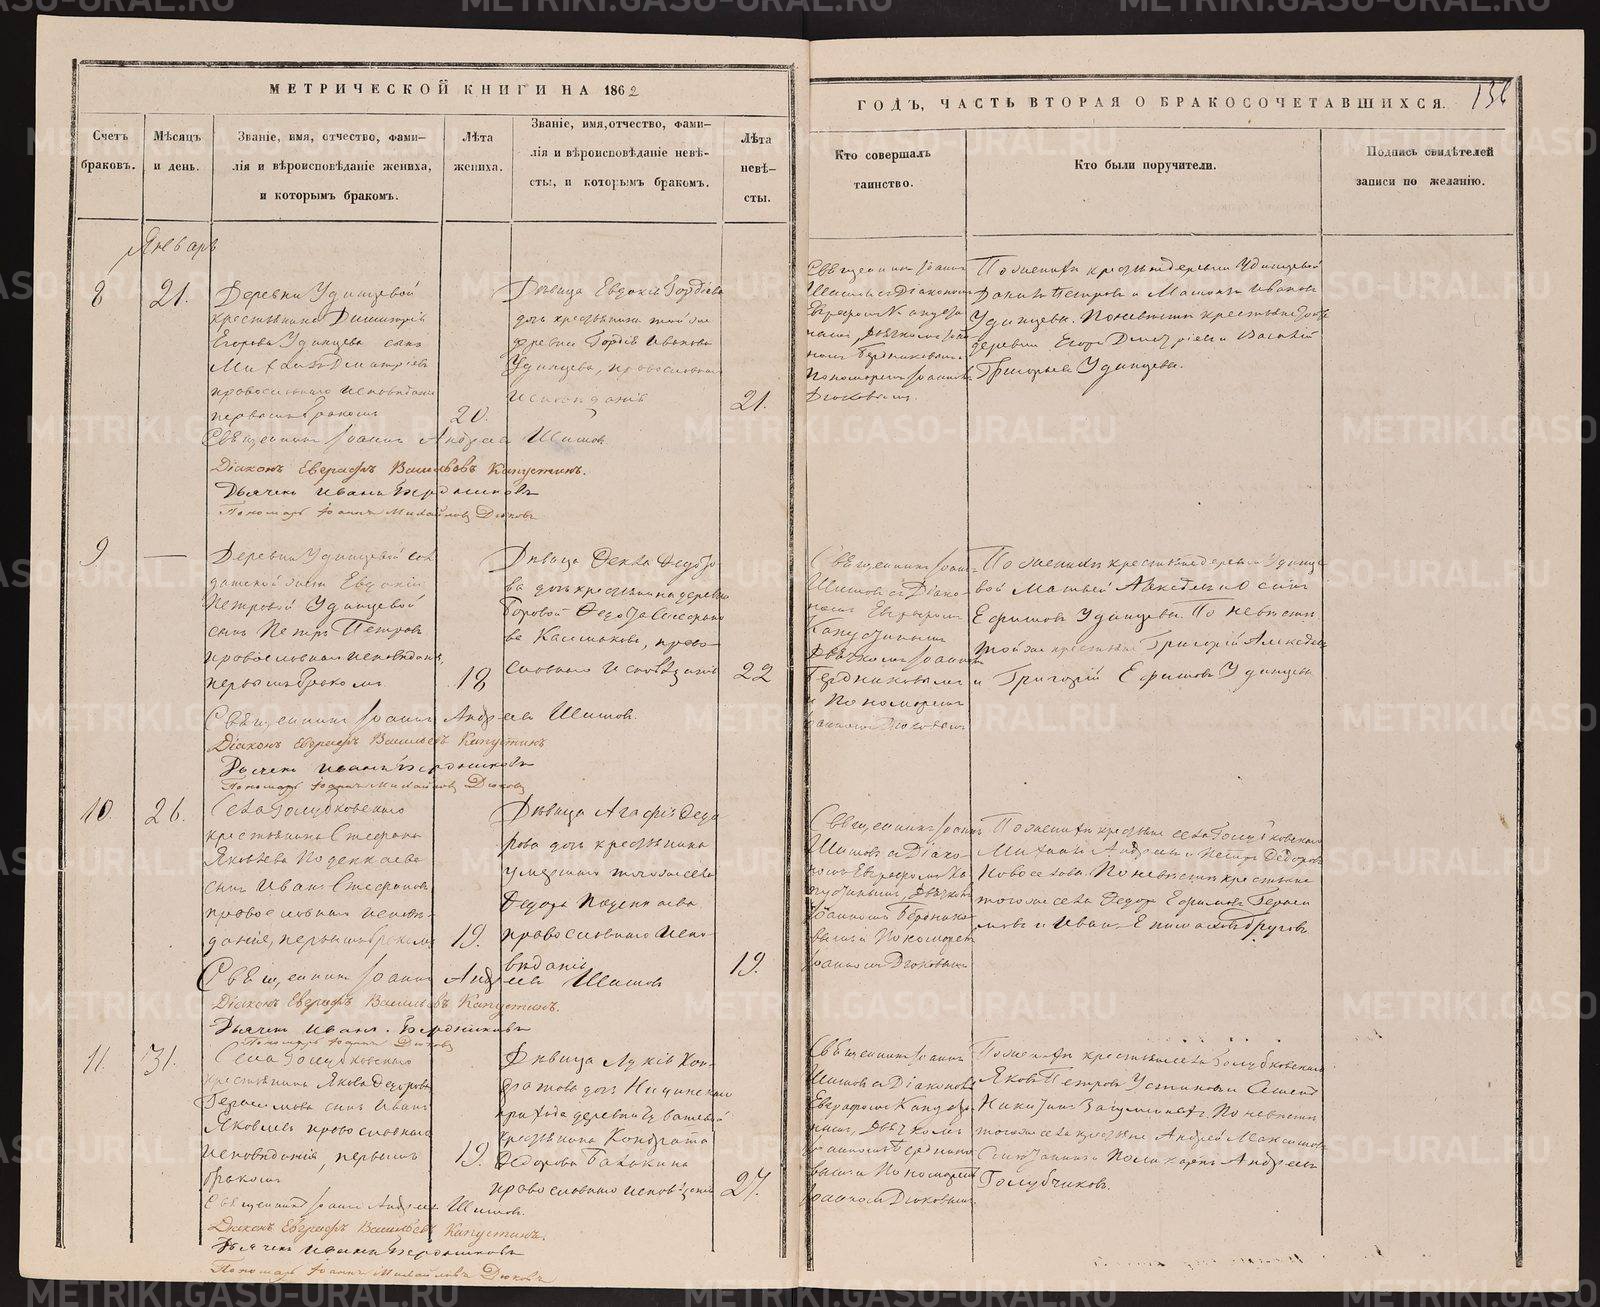 МЕТРИЧЕСКОЙ КНИГИ НА 1862
Счетъ браковъ.
Мѣсяцъ и день.
Званіе, имя, отчество, фами-
лія и вѣроисповѣданіе жениха,
и которымъ бракомъ.
Лѣта жениха.
Званіе, имя, отчество, фами-
лія и вѣроисповѣданіе невѣ-
сты, и которымъ бракомъ.
Лѣта невѣ-
сты.
Январь
8
21.
Деревни Удинцевой
крестьянина Димитрія
Егорова Удинцева сынъ
Михаилъ Дмитріевъ
православнаго исповѣданія
первымъ бракомъ
20.
Дѣвица Евдокія Гордіева
дочь крестьянина той же
деревни Гордія Иванова
Удинцева, православнаго
исповѣданія
21.
Священникъ Іоаннъ Андреевъ Шишовъ
Діаконъ Евграфъ Васильевъ Капустинъ.
Дьячекъ Иванъ Бердниковъ
Пономарь Іоаннъ Михайловъ Дюковъ
9
—
Деревни Удинцевой сол-
датской жены Евдокіи
Петровой Удинцевой
сынъ Петръ Петровъ
православнаго исповѣданія,
первымъ бракомъ
18
Дѣвица Фекла Федото-
ва дочь крестьянина деревни
православнаго исповѣданія
22
Священникъ Іоаннъ Андреевъ Шишовъ.
Діаконъ Евграфъ Васильевъ Капустинъ
Дьячекъ Иванъ Бердниковъ
Пономарь Іоаннъ Михайловъ Дюковъ
10.
26.
Села Голубковскаго
крестьянина Стефана
Яковлева Поденкаева
сынъ Иванъ Стефановъ,
православнаго исповѣ-
данія, первымъ бракомъ
19.
Дѣвица Агафія Федо
рова дочь крестьянина
умершаго того же села
Федора Поденкаева
православнаго испо-
вѣданія
19.
Священникъ Іоаннъ Андреевъ Шишовъ
Діаконъ Евграфъ Васильевъ Капустинъ.
Дьячекъ Иванъ Бердниковъ
Пономарь Іоаннъ Дюковъ
11.
31.
Села Голубковскаго
крестьянина Якова Федорова
Герасимова сынъ Иванъ
Яковлевъ православнаго
исповѣданія, первымъ
бракомъ
19.
Дѣвица Лукія Кон-
дратова дочь Ницинскаго
прихода деревни
крестьянина Кондрата
Федорова Балакина
православнаго исповѣданія
27.
Священникъ Іоаннъ Андреевъ Шишовъ.
Діаконъ Евграфъ Васильевъ Капустинъ.
Дьячекъ Иванъ Бердниковъ
Пономарь Іоаннъ Михайловъ Дюковъ
ГОДЪ, ЧАСТЬ ВТОРАЯ О БРАКОСОЧЕТАВШИХСЯ.
136
Кто совершалъ таинство.
Кто были поручители.
Подпись свидѣтелей записи по желанію.
Священникъ Іоаннъ
Шишовъ съ Діакономъ
Евграфомъ Капусти-
нымъ, Дьячкомъ Іоан-
номъ Бердниковымъ и
Пономаремъ Іоанномъ
Дюковымъ.
По женихѣ крестьяне деревни Удинцевой
Данилъ Петровъ и Матвѣй Ивановъ
Удинцевы. По невѣстѣ крестьяне той же
деревни Егоръ Дмитріевъ и Василій
Григорьевъ Удинцевы.
Священникъ Іоаннъ
Шишовъ съ Діако-
номъ Евграфомъ
Капустинымъ
Дьячкомъ Іоанномъ
Бердниковымъ
и Пономаремъ
Іоанномъ Дюковымъ
По женихѣ крестьяне деревни Удинце
вой Матвѣй и Осипъ
Ефимовъ Удинцевы. По невѣстѣ
той же крестьяне Григорій
и Григорій Ефимовъ Удинцевы
Священникъ Іоаннъ
Шишовъ съ Діако-
номъ Евграфомъ Ка-
пустинымъ, Дьячкомъ
Іоанномъ Бердников-
вымъ и Пономаремъ
Іоанномъ Дюковымъ
По женихѣ крестьяне села Голубковскаго
Михаилъ Андреевъ и Петръ Федоровъ
Новоселовы. По невѣстѣ крестьяне
того же села Федоръ Ефимовъ Гераси
мовъ и Иванъ
Священникъ Іоаннъ
Шишовъ съ Діакономъ
Евграфомъ Капусти-
нымъ, Дьячкомъ
Іоанномъ Бердников-
вымъ и Пономаремъ
Іоанномъ Дюковымъ
По женихѣ крестьяне села Голубковскаго
Яковъ Петровъ Устиновъ и
Никитинъ. По невѣстѣ
того же села крестьяне Андрей Максимовъ
и Поликарпъ Андреевъ
Голубчиковъ.
METRIKI.GASO-URAL.RU